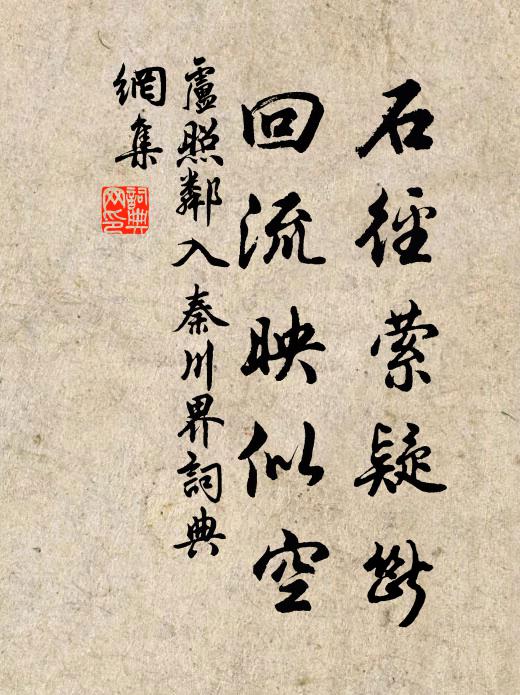 石徑縈疑斷
回流映似空
盧照鄰入秦川界詞典
網集
詞典網印